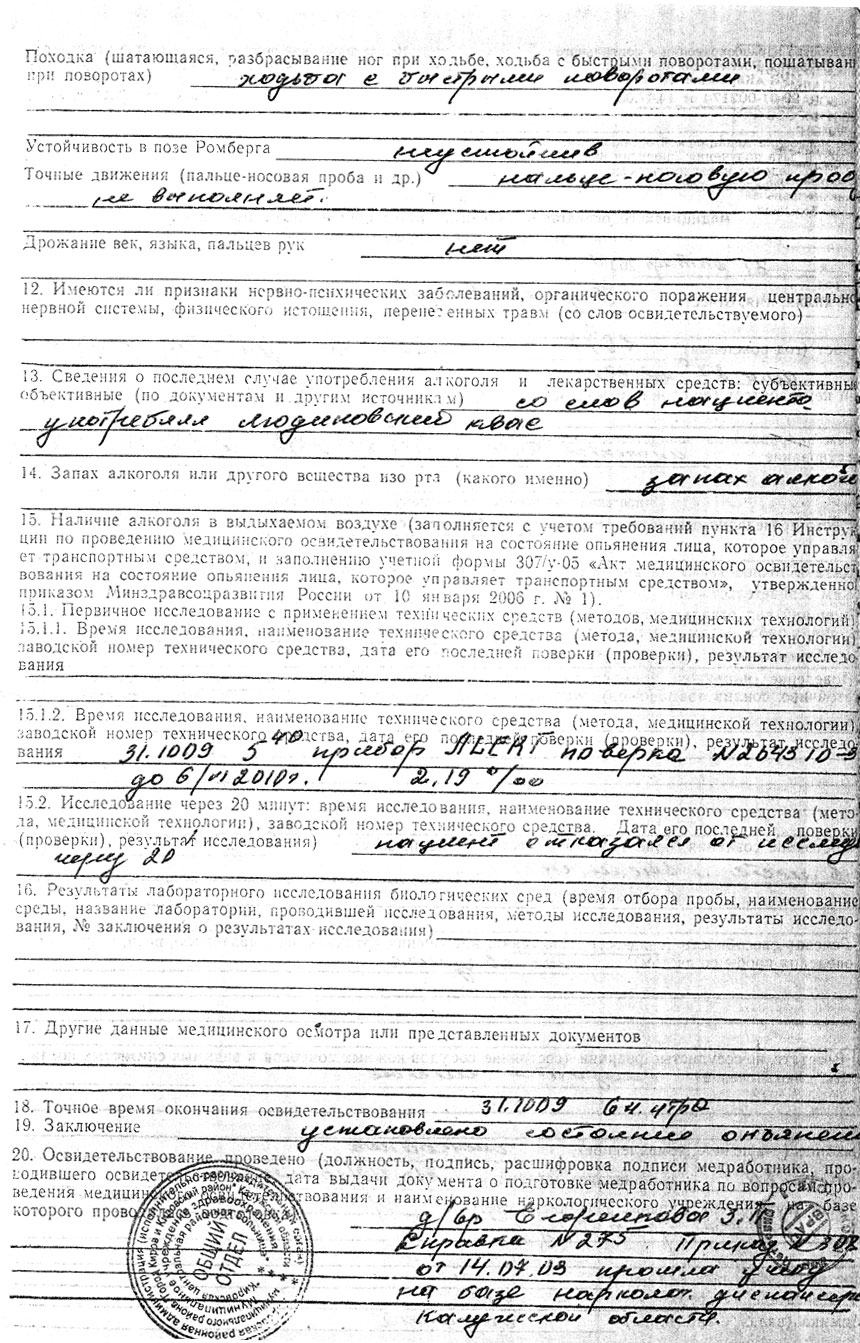 Походка (шатающаяся, разбрасывание ног при ходьбе, ходьба с быстрыми поворотами, пошатывани
при поворотах) ходьба с быстрыми поворотами
Устойчивость в позе Ромберга неустойчив
Точные движения (пальце-носовая проба и др.) пальце-носовую проб
не выполняет.
Дрожание век, языка, пальцев рук нет
12. Имеются ли признаки нервно-психических заболеваний, органического поражения центрально
нервной системы, физического истощения, перенесенных травм (со слов освидетельствуемого)
13. Сведения о последнем случае употребления алкоголя и лекарственных средств: субъективны
объективные (по документам и другим источникам) со слов пациента
употреблял людиновский квас
14. Запах алкоголя или другого вещества изо рта (какого именно) запах алкого
15. Наличие алкоголя в выдыхаемом воздухе (заполняется с учетом требований пункта 16 Инструк
ции по проведению медицинского освидетельствования на состояние опьянения лица, которое управля
ет транспортным средством, и заполнению учетной формы 307/у-05 «Акт медицинского освидетельст
вования на состояние опьянения лица, которое управляет транспортным средством», утвержденно
приказом Минздравсоцразвития России от 10 января 2006 г. № 1).
15.1. Первичное исследование с применением технических средств (методов, медицинских технологий)
15.1.1. Время исследования, наименование технического средства (метода, медицинской технологии)
заводской номер технического средства, дата его последней поверки (проверки), результат исследо-
вания
15.1.2. Время исследования, наименование технического средства (метода, медицинской технологии)
заводской номер технического средства, дата его последней поверки (проверки), результат исследо-
вания 31.1009 5 40 прибор ALERT поверка N204310-
до 6/VI 2010г. 2,19 ‰
15.2. Исследование через 20 минут: время исследования, наименование технического средства (мето-
да, медицинской технологии), заводской номер технического средства. Дата его последней поверки
(проверки), результат исследования) пациент отказался от исслед
через 20
16. Результаты лабораторного исследования биологических сред (время отбора пробы, наименование
среды, название лаборатории, проводившей исследования, методы исследования, результаты исследо-
вания, № заключения о результатах исследования)
17. Другие данные медицинского осмотра или представленных документов
18. Точное время окончания освидетельствования 31.1009 6 ч. утра
19. Заключение установлено состояние опьянен
20. Освидетельствование проведено (должность, подпись, расшифровка подписи медработника, про-
водившего освидетельствование, дата выдачи документа о подготовке медработника по вопросам про-
ведения медицинского освидетельствования и наименование наркологического учреждения, на базе
которого д/вр
Справка N 275 Приказ N 308
от 14.07.03 прошла учебу
на базе нарколог. диспансера
Калужской области.
ОБЩИЙ
ОТДЕЛ
ВРАЧ